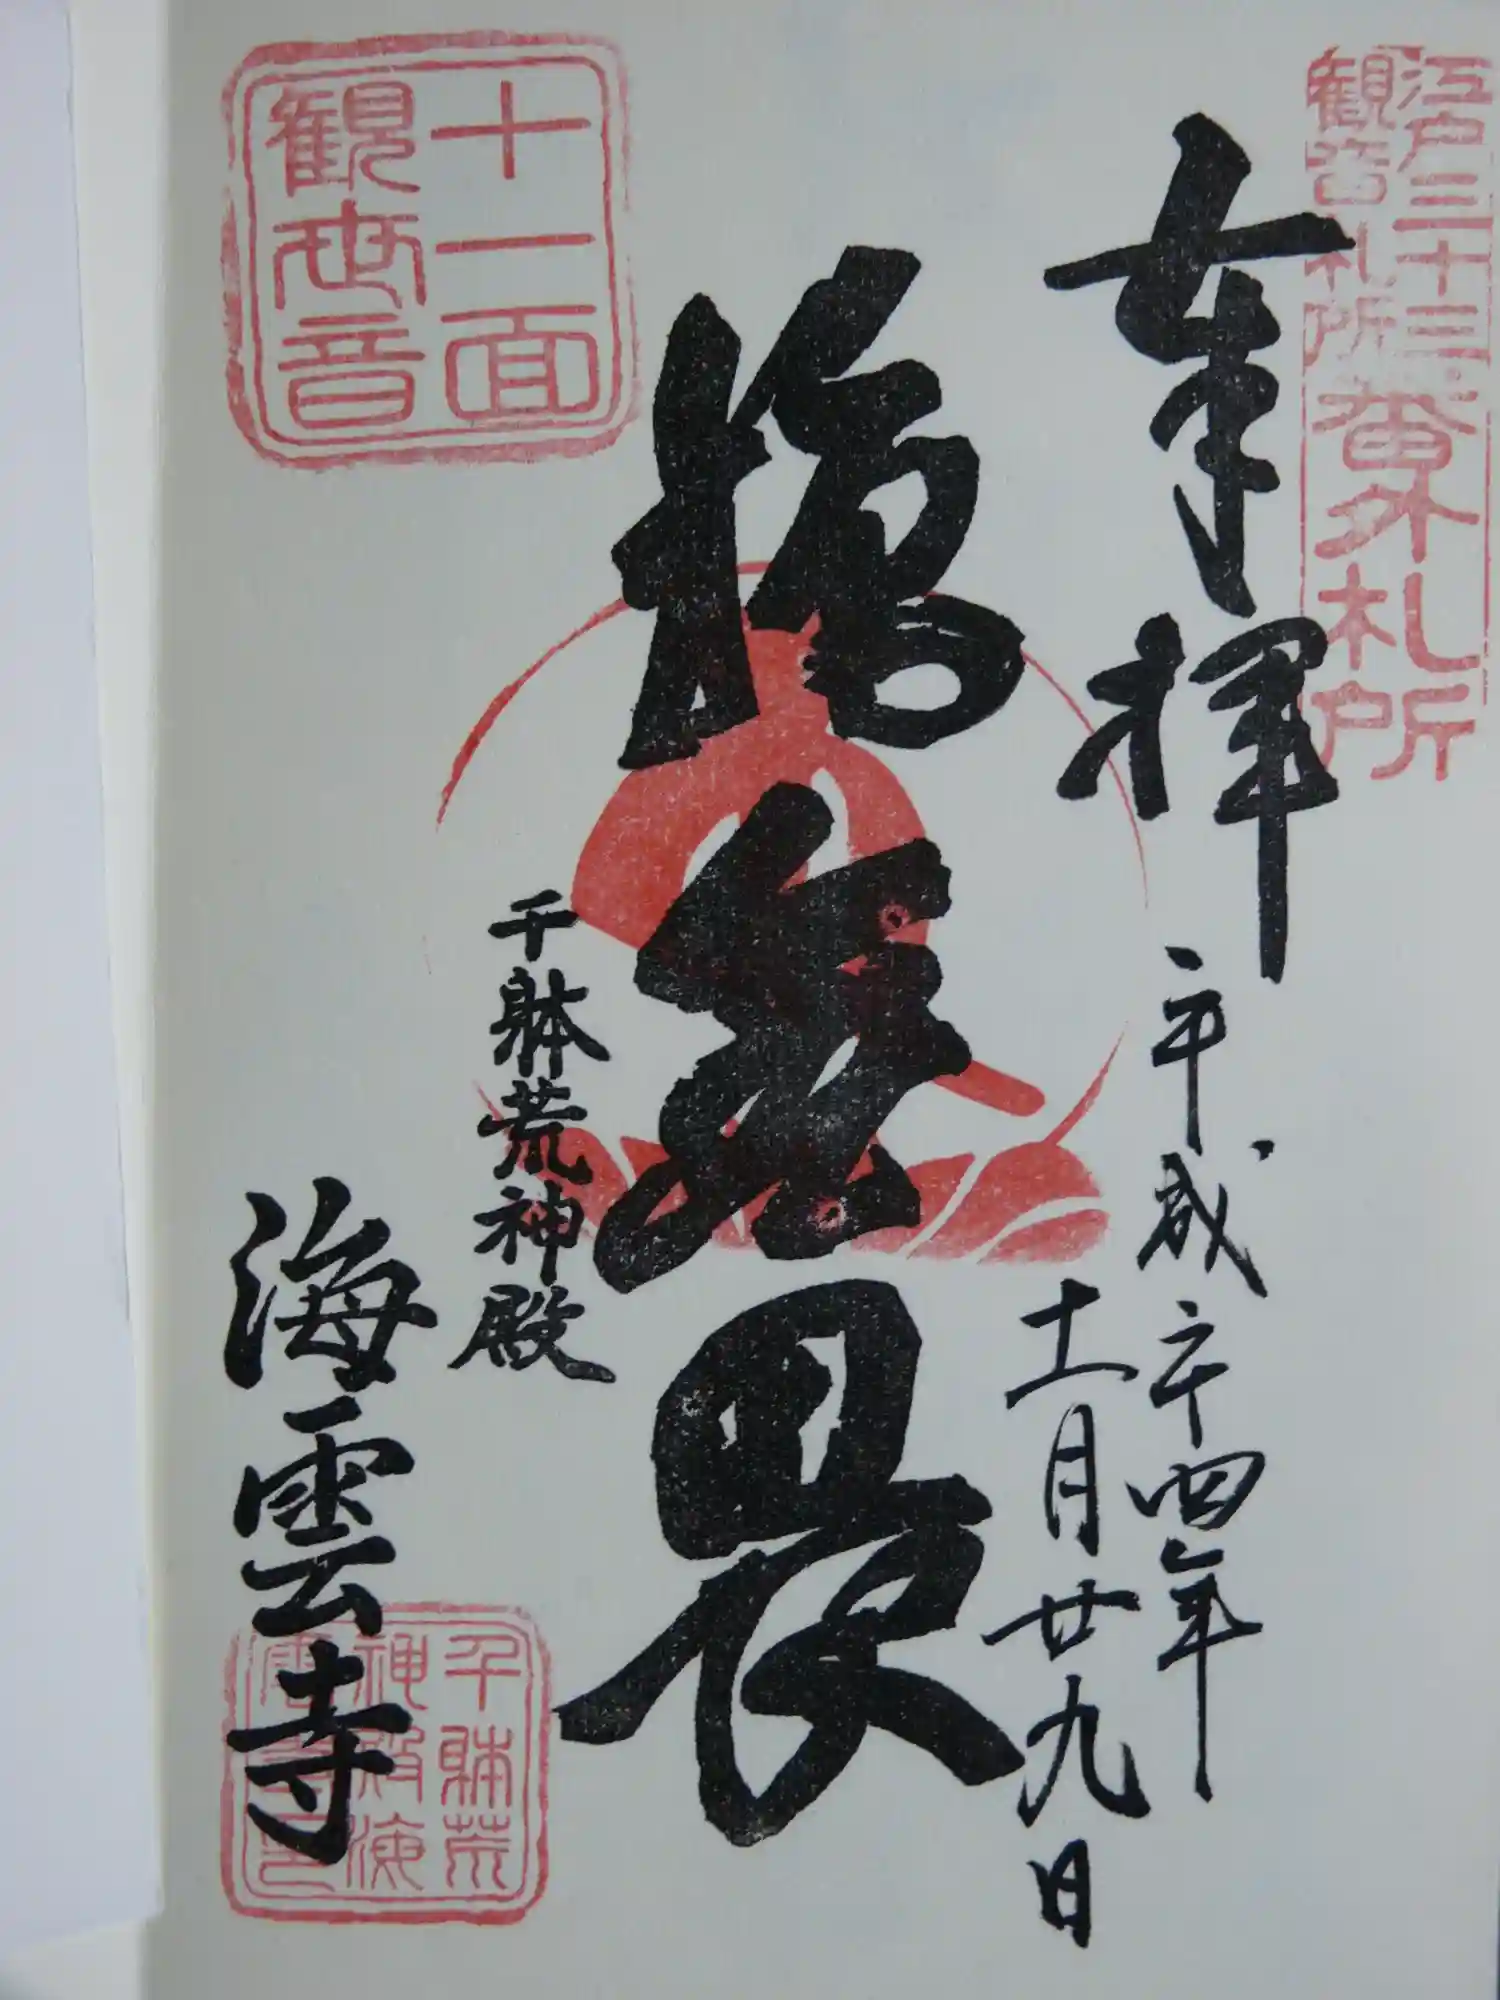 江戸三十三
観音札所
番外札所
奉拝
平成二十四年
十一月廿九日
施無畏
十一面
観世音
千躰荒神殿
海雲寺
千躰荒
神殿海
雲寺印